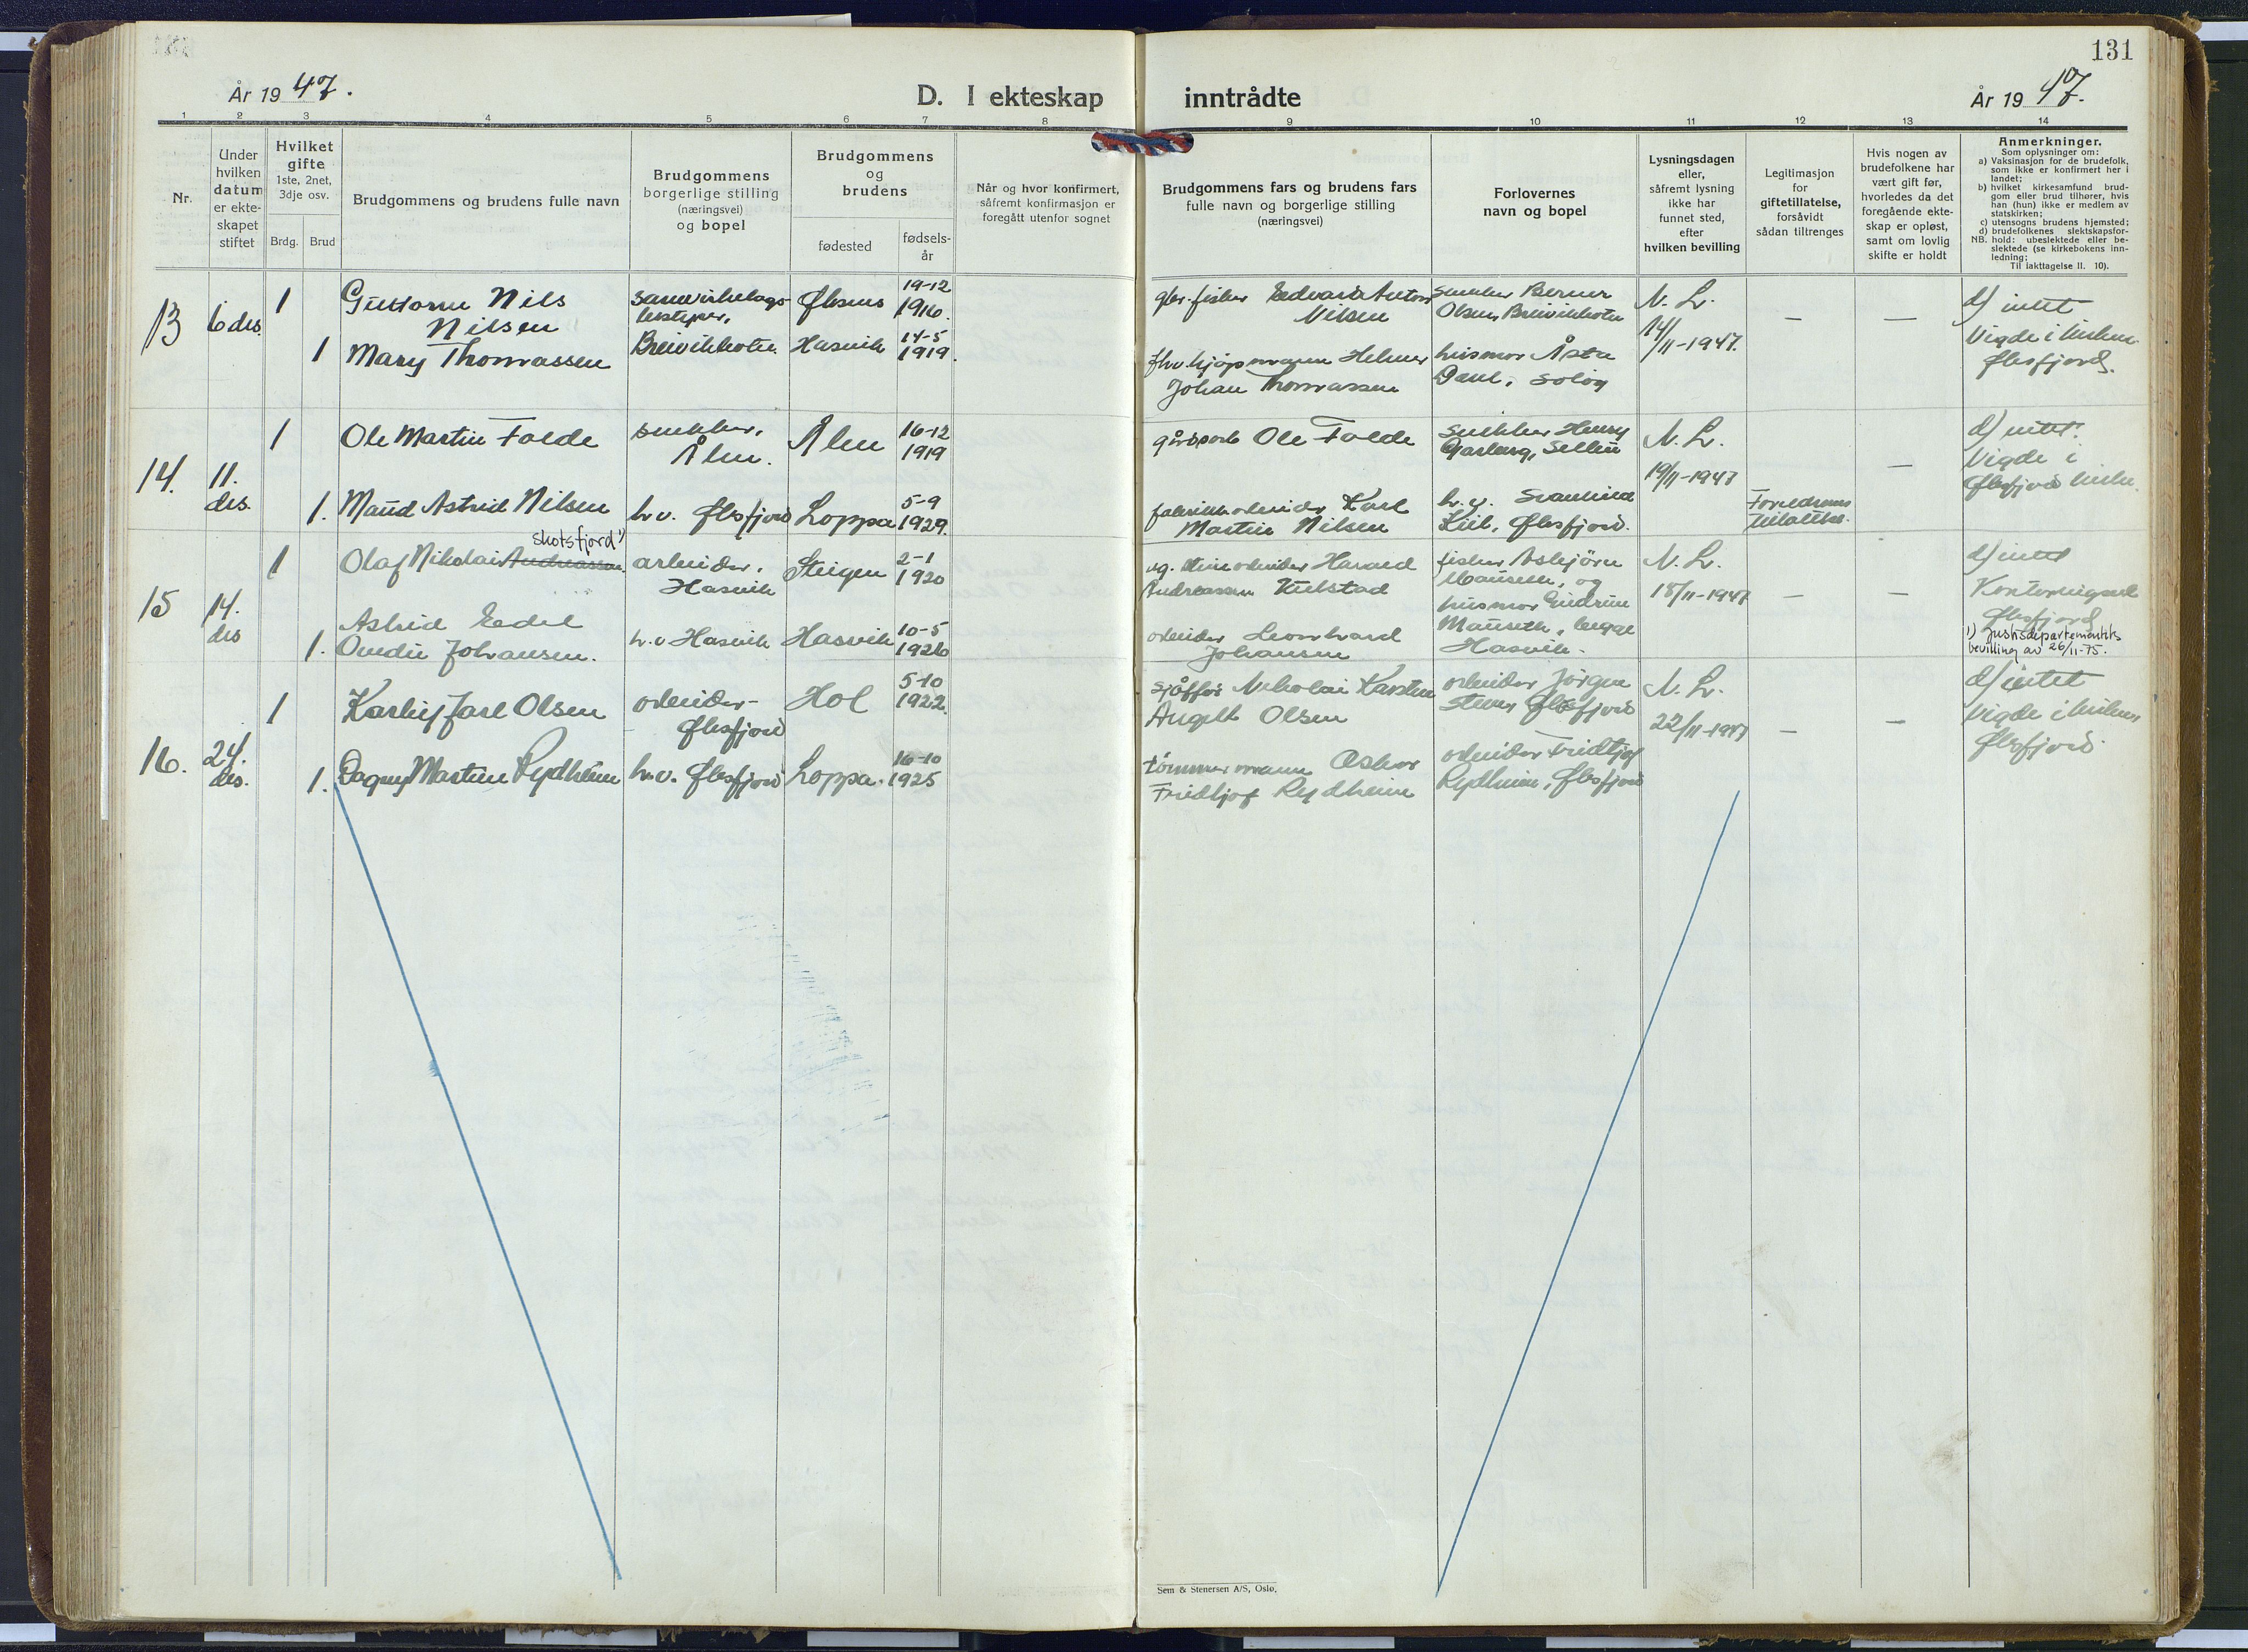 131
År 19 47.
D. I ekteskap inntrådte
År 19 47.
1 2 3 4 5 6 7 8 9 10 11 12 13 14
Nr.
Under
hvilken
datum
er ekte-
skapet
stiftet
Hvilket
gifte
1ste, 2net,
3dje osv.
Brdg. Brud
Brudgommens og brudens fulle navn
Brudgommens
borgerlige stilling
(næringsvei)
og bopel
Brudgommens
og
brudens
fødested
fødsels-
år
Når og hvor konfirmert,
såfremt konfirmasjon er
foregått utenfor sognet
Brudgommens fars og brudens fars
fulle navn og borgerlige stilling
(næringsvei)
Forlovernes
navn og bopel
Lysningsdagen
eller,
såfremt lysning
ikke har
funnet sted,
efter
hvilken bevilling
Legitimasjon
for
giftetillatelse,
forsåvidt
sådan tiltrenges
Hvis nogen av
brudefolkene har
vært gift før,
hvorledes da det
foregående ekte-
skap er opløst,
samt om lovlig
skifte er holdt
Anmerkninger.
Som oplysninger om:
a) Vaksinasjon for de brudefolk,
som ikke er konfirmert her i
landet;
b) hvilket kirkesamfund brud-
gom eller brud tilhører, hvis
han (hun) ikke er medlem av
statskirken;
c) utensogns brudens hjemsted;
d) brudefolkenes slektskapsfor-
NB. hold: ubeslektede eller be-
slektede (se kirkebokens inn-
ledning;
Til iakttagelse II. 10).
13
6 des.
1
Nils
Nilsen
1 Mary Thomassen
Breivikbotn
Øksnes
19-12
1916.
Hasvik
14-5
1919.
fisker Edvard Anton
Nilsen
Helmer
Johan Thomassen
snekker Berner
Olsen, Breivikbotn
husmor Åsta
N. L.
14/
/11-1947.
—
—
d) intet
Vigde i kirken
Øksfjord.
14.
11.
des.
1
Ole Martin Folde
snekker,
Ålen.
Ålen
16-12
1919
1. Maud Astrid Nilsen
h.v. Øksfjord
Loppa
5-9
1929.
Ole Folde
Karl
Martin Nilsen
snekker Henry
h.v.
Øksfjord.
N. L.
19/11-1947
Foreldrenes
tillatelse.
—
d) intet.
Vigde i
Øksfjord kirke.
15
14.
des
1
Skotsfjord 1)
Olaf Nikolai Andreassen.
arbeider,
Hasvik
Steigen
2-1
1920
Astrid Edel
1. Johansen.
h.v. Hasvik
Hasvik
10-5
1926
Harald
Andreassen
arbeider Leonhard
Johansen
fisker Asbjørn
Mauseth, og
husmor Gudrun
Mauseth, begge
Hasvik.
N. L.
18/11-1947
—
—
d) intet
Øksfjord
1) Justisdepartementets
bevilling av 26/11-75.
16.
24.
des.
1
Jarl Olsen
arbeider-
Øksfjord
Hol
5-10
1922.
1. Dagny Martine Rydheim
h.v. Øksfjord
Loppa.
16-10
1925
sjåffør Nikolai Karsten
Angell Olsen
tømmermann Oskar
Fridtjof Rydheim
arbeider Jørgen
Steen, Øksfjord
arbeider Fridtjof
Rydheim, Øksfjord
N. L.
22/11-1947
—
—
d) intet
Vigde i kirken
Øksfjord.
Sem & Stenersen A/S, Oslo.